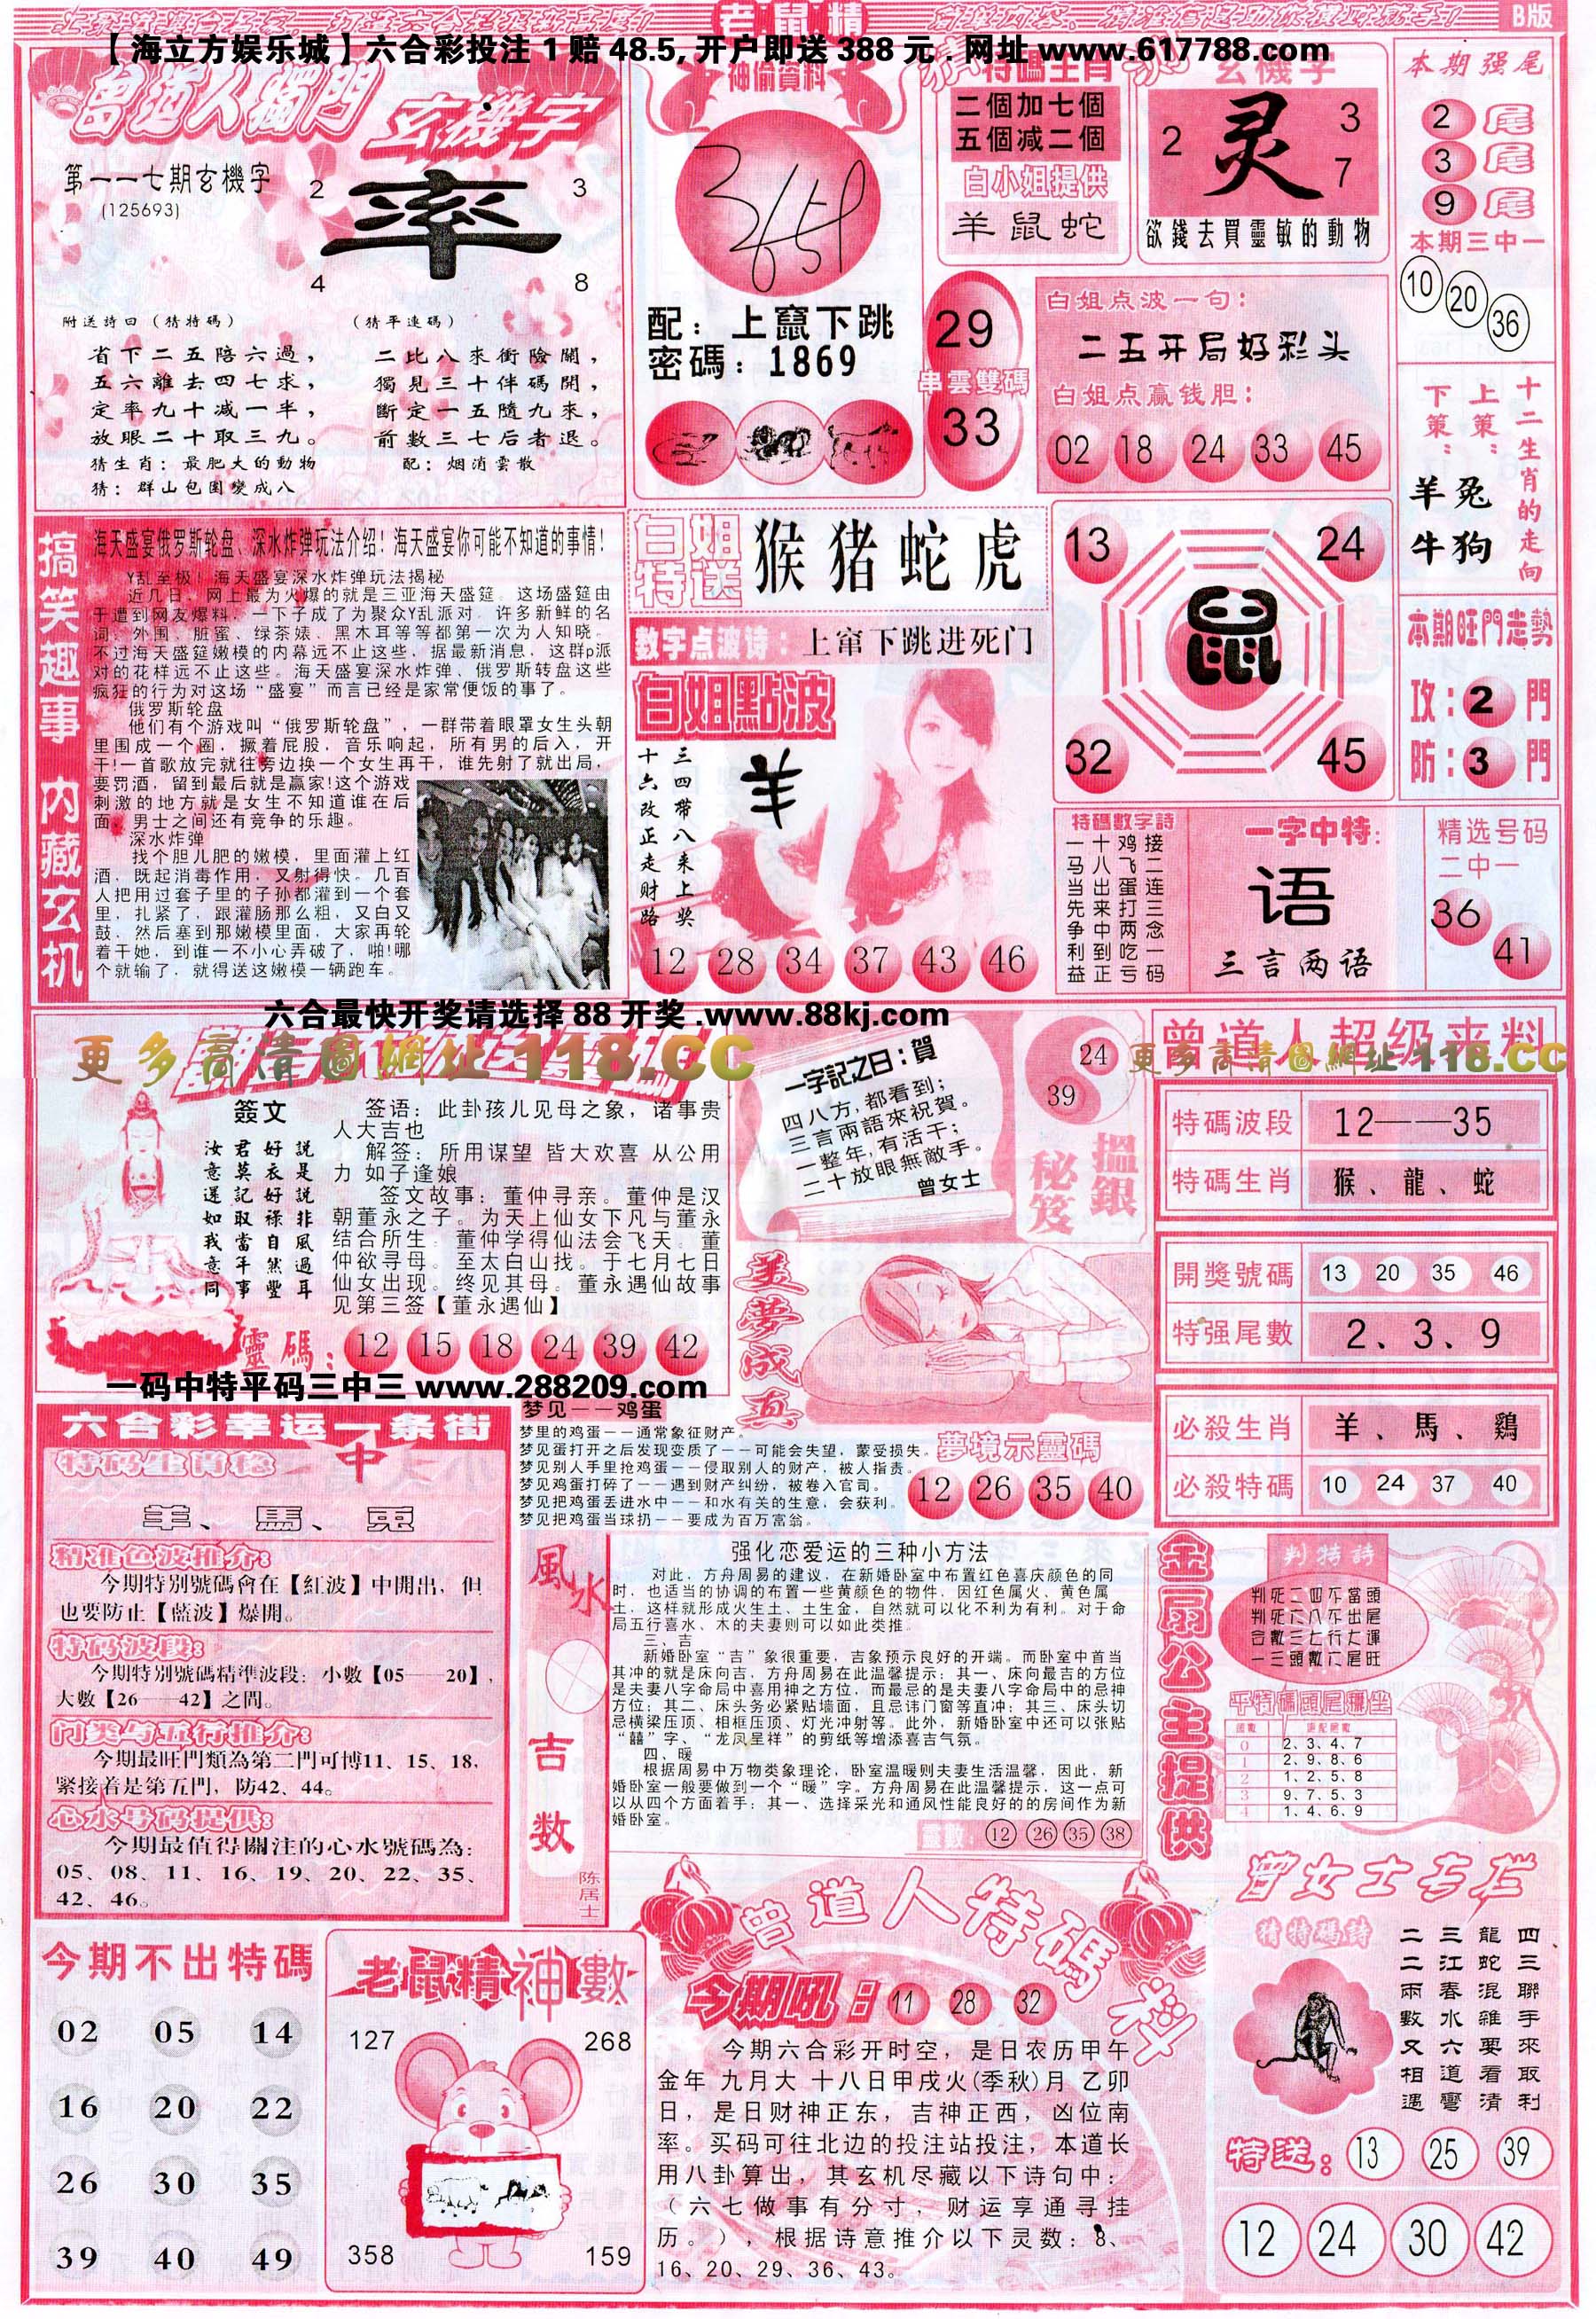 老鼠精
B版
【海立方娱乐城】六合彩投注 1 赔 48.5, 开户即送 388 元 . 网址 www.617788.com
曾道人獨門
玄機字
第一一七期玄機字
(125693)
率
2
3
4
8
附送詩曰（猜特碼）
省下二五陪六過，
五六離去四七求，
定率九十减一半，
放眼二十取三九。
猜生肖：最肥大的動物
猜：群山包圍變成八
（猜平連碼）
二比八來衝險關，
獨見三十伴碼開，
斷定一五隨九來，
前數三七后者退。
配：烟消雲散
神偷資料
配：上竄下跳
密碼：1869
特碼生肖
二個加七個
五個减二個
白小姐提供
羊鼠蛇
玄機字
灵
2
3
7
欲錢去買靈敏的動物
本期强尾
2 尾
3 尾
9 尾
本期三中一
10 20 36
29
串雲雙碼
33
白姐点波一句：
二五开局好彩头
白姐点赢钱胆：
02 18 24 33 45
十二生肖的走向
上策：
下策：
羊兔
牛狗
搞笑趣事 内藏玄机
海天盛宴俄罗斯轮盘、深水炸弹玩法介绍！海天盛宴你可能不知道的事情！
Y乱至极！海天盛宴深水炸弹玩法揭秘
近几日，网上最为火爆的就是三亚海天盛筵。这场盛筵由
于遭到网友爆料，一下子成了为聚众Y乱派对。许多新鲜的名
词：外围、脏蜜、绿茶婊、黑木耳等等都第一次为人知晓。
不过海天盛筵嫩模的内幕远不止这些，据最新消息，这群p派
对的花样远不止这些。海天盛宴深水炸弹、俄罗斯转盘这些
疯狂的行为对这场“盛宴”而言已经是家常便饭的事了。
俄罗斯轮盘
他们有个游戏叫“俄罗斯轮盘”，一群带着眼罩女生头朝
里围成一个圈，撅着屁股，音乐响起，所有男的后入，开
干!一首歌放完就往旁边换一个女生再干，谁先射了就出局，
要罚酒，留到最后就是赢家!这个游戏
刺激的地方就是女生不知道谁在后
面，男士之间还有竞争的乐趣。
深水炸弹
找个胆儿肥的嫩模，里面灌上红
酒，既起消毒作用，又射得快。几百
人把用过套子里的子孙都灌到一个套
里，扎紧了，跟灌肠那么粗，又白又
鼓，然后塞到那嫩模里面，大家再轮
着干她，到谁一不小心弄破了，啪!哪
个就输了，就得送这嫩模一辆跑车。
白姐特送
猴猪蛇虎
数字点波诗：上窜下跳进死门
白姐點波
三四带八来上奖
十六改正走财路
羊
12 28 34 37 43 46
13
24
鼠
32
45
本期旺門走勢
攻：2 門
防：3 門
特碼數字詩
接二连三念一码
鸡飞蛋打两吃亏
十八出来中到正
一马当先争利益
一字中特：
语
三言两语
精选号码
二中一
36
41
六合最快开奖请选择 88 开奖 .www.88kj.com
更多高清圖網址 118.CC
簽文
說是說非風過耳
好衣好祿自然豐
君莫記取當年事
汝意還如我意同
签语：此卦孩儿见母之象，诸事贵
人大吉也
解签：所用谋望 皆大欢喜 从公用
力 如子逢娘
签文故事：董仲寻亲。董仲是汉
朝董永之子。为天上仙女下凡与董永
结合所生。董仲学得仙法会飞天。董
仲欲寻母。至太白山找。于七月七日
仙女出现。终见其母。董永遇仙故事
见第三签【董永遇仙】
靈碼：12 15 18 24 39 42
一码中特平码三中三 www.288209.com
一字記之曰：賀
四八方,都看到；
三言兩語來祝賀。
一整年,有活干；
二十放眼無敵手。
曾女士
24
39
搵銀秘笈
美夢成真
曾道人超级来料
更多高清圖網址 118.CC
特碼波段 12——35
特碼生肖 猴、龍、蛇
開獎號碼 13 20 35 46
特强尾數 2、3、9
必殺生肖 羊、馬、鷄
必殺特碼 10 24 37 40
六合彩幸运一条街
特码生肖稳中
羊、馬、兎
精准色波推介：
今期特别號碼會在【紅波】中開出，但
也要防止【藍波】爆開。
特码波段：
今期特别號碼精準波段：小數【05——20】，
大數【26——42】之間。
门类与五行推介：
今期最旺門類為第二門可博11、15、18，
緊接着是第五門，防42、44。
心水号码提供：
今期最值得關注的心水號碼為：
05、08、11、16、19、20、22、35、
42、46。
梦见——鸡蛋
梦里的鸡蛋——通常象征财产。
梦见蛋打开之后发现变质了——可能会失望，蒙受损失。
梦见别人手里抢鸡蛋——侵取别人的财产，被人指责。
梦见鸡蛋打碎了——遇到财产纠纷，被卷入官司。
梦见把鸡蛋丢进水中——和水有关的生意，会获利。
梦见把鸡蛋当球扔——要成为百万富翁。
夢境示靈碼
12 26 35 40
風水
吉数
陈居士
强化恋爱运的三种小方法
对此，方舟周易的建议，在新婚卧室中布置红色喜庆颜色的同
时，也适当的协调的布置一些黄颜色的物件，因红色属火、黄色属
土，这样就形成火生土、土生金，自然就可以化不利为有利。对于命
局五行喜水、木的夫妻则可以如此类推。
三、吉
新婚卧室“吉”象很重要，吉象预示良好的开端。而卧室中首当
其冲的就是床向吉，方舟周易在此温馨提示：其一、床向最吉的方位
是夫妻八字命局中喜用神之方位，而最忌的是夫妻八字命局中的忌神
方位；其二、床头务必紧贴墙面，且忌讳门窗等直冲；其三、床头切
忌横梁压顶、相框压顶、灯光冲射等。此外，新婚卧室中还可以张贴
“囍”字、“龙凤呈祥”的剪纸等增添喜吉气氛。
四、暖
根据周易中万物类象理论，卧室温暖则夫妻生活温馨，因此，新
婚卧室一般要做到一个“暖”字。方舟周易在此温馨提示，这一点可
以从四个方面着手：其一、选择采光和通风性能良好的的房间作为新
婚卧室。
靈數：12 26 35 38
金扇公主提供
判特詩
判死二四不當頭
判死六八不出尾
合數三七行大運
一三頭數六尾旺
0 2、3、4、7
1 2、9、8、6
2 1、2、5、8
3 9、7、5、3
4 1、4、6、9
今期不出特碼
02 05 14
16 20 22
26 30 35
39 40 49
老鼠精神數
127
268
358
159
曾道人特碼料
今期吼：11 28 32
今期六合彩开时空，是日农历甲午
金年 九月大 十八日甲戌火(季秋)月 乙卯
日，是日财神正东，吉神正西，凶位南
率。买码可往北边的投注站投注，本道长
用八卦算出，其玄机尽藏以下诗句中：
（六七做事有分寸，财运享通寻挂
历。），根据诗意推介以下灵数：8、
16、20、29、36、43。
曾女士专栏
猜特碼詩
四三聯手來取利
龍蛇混雜要看清
三江春水六道彎
二二兩數又相遇
特送：13 25 39
12 24 30 42